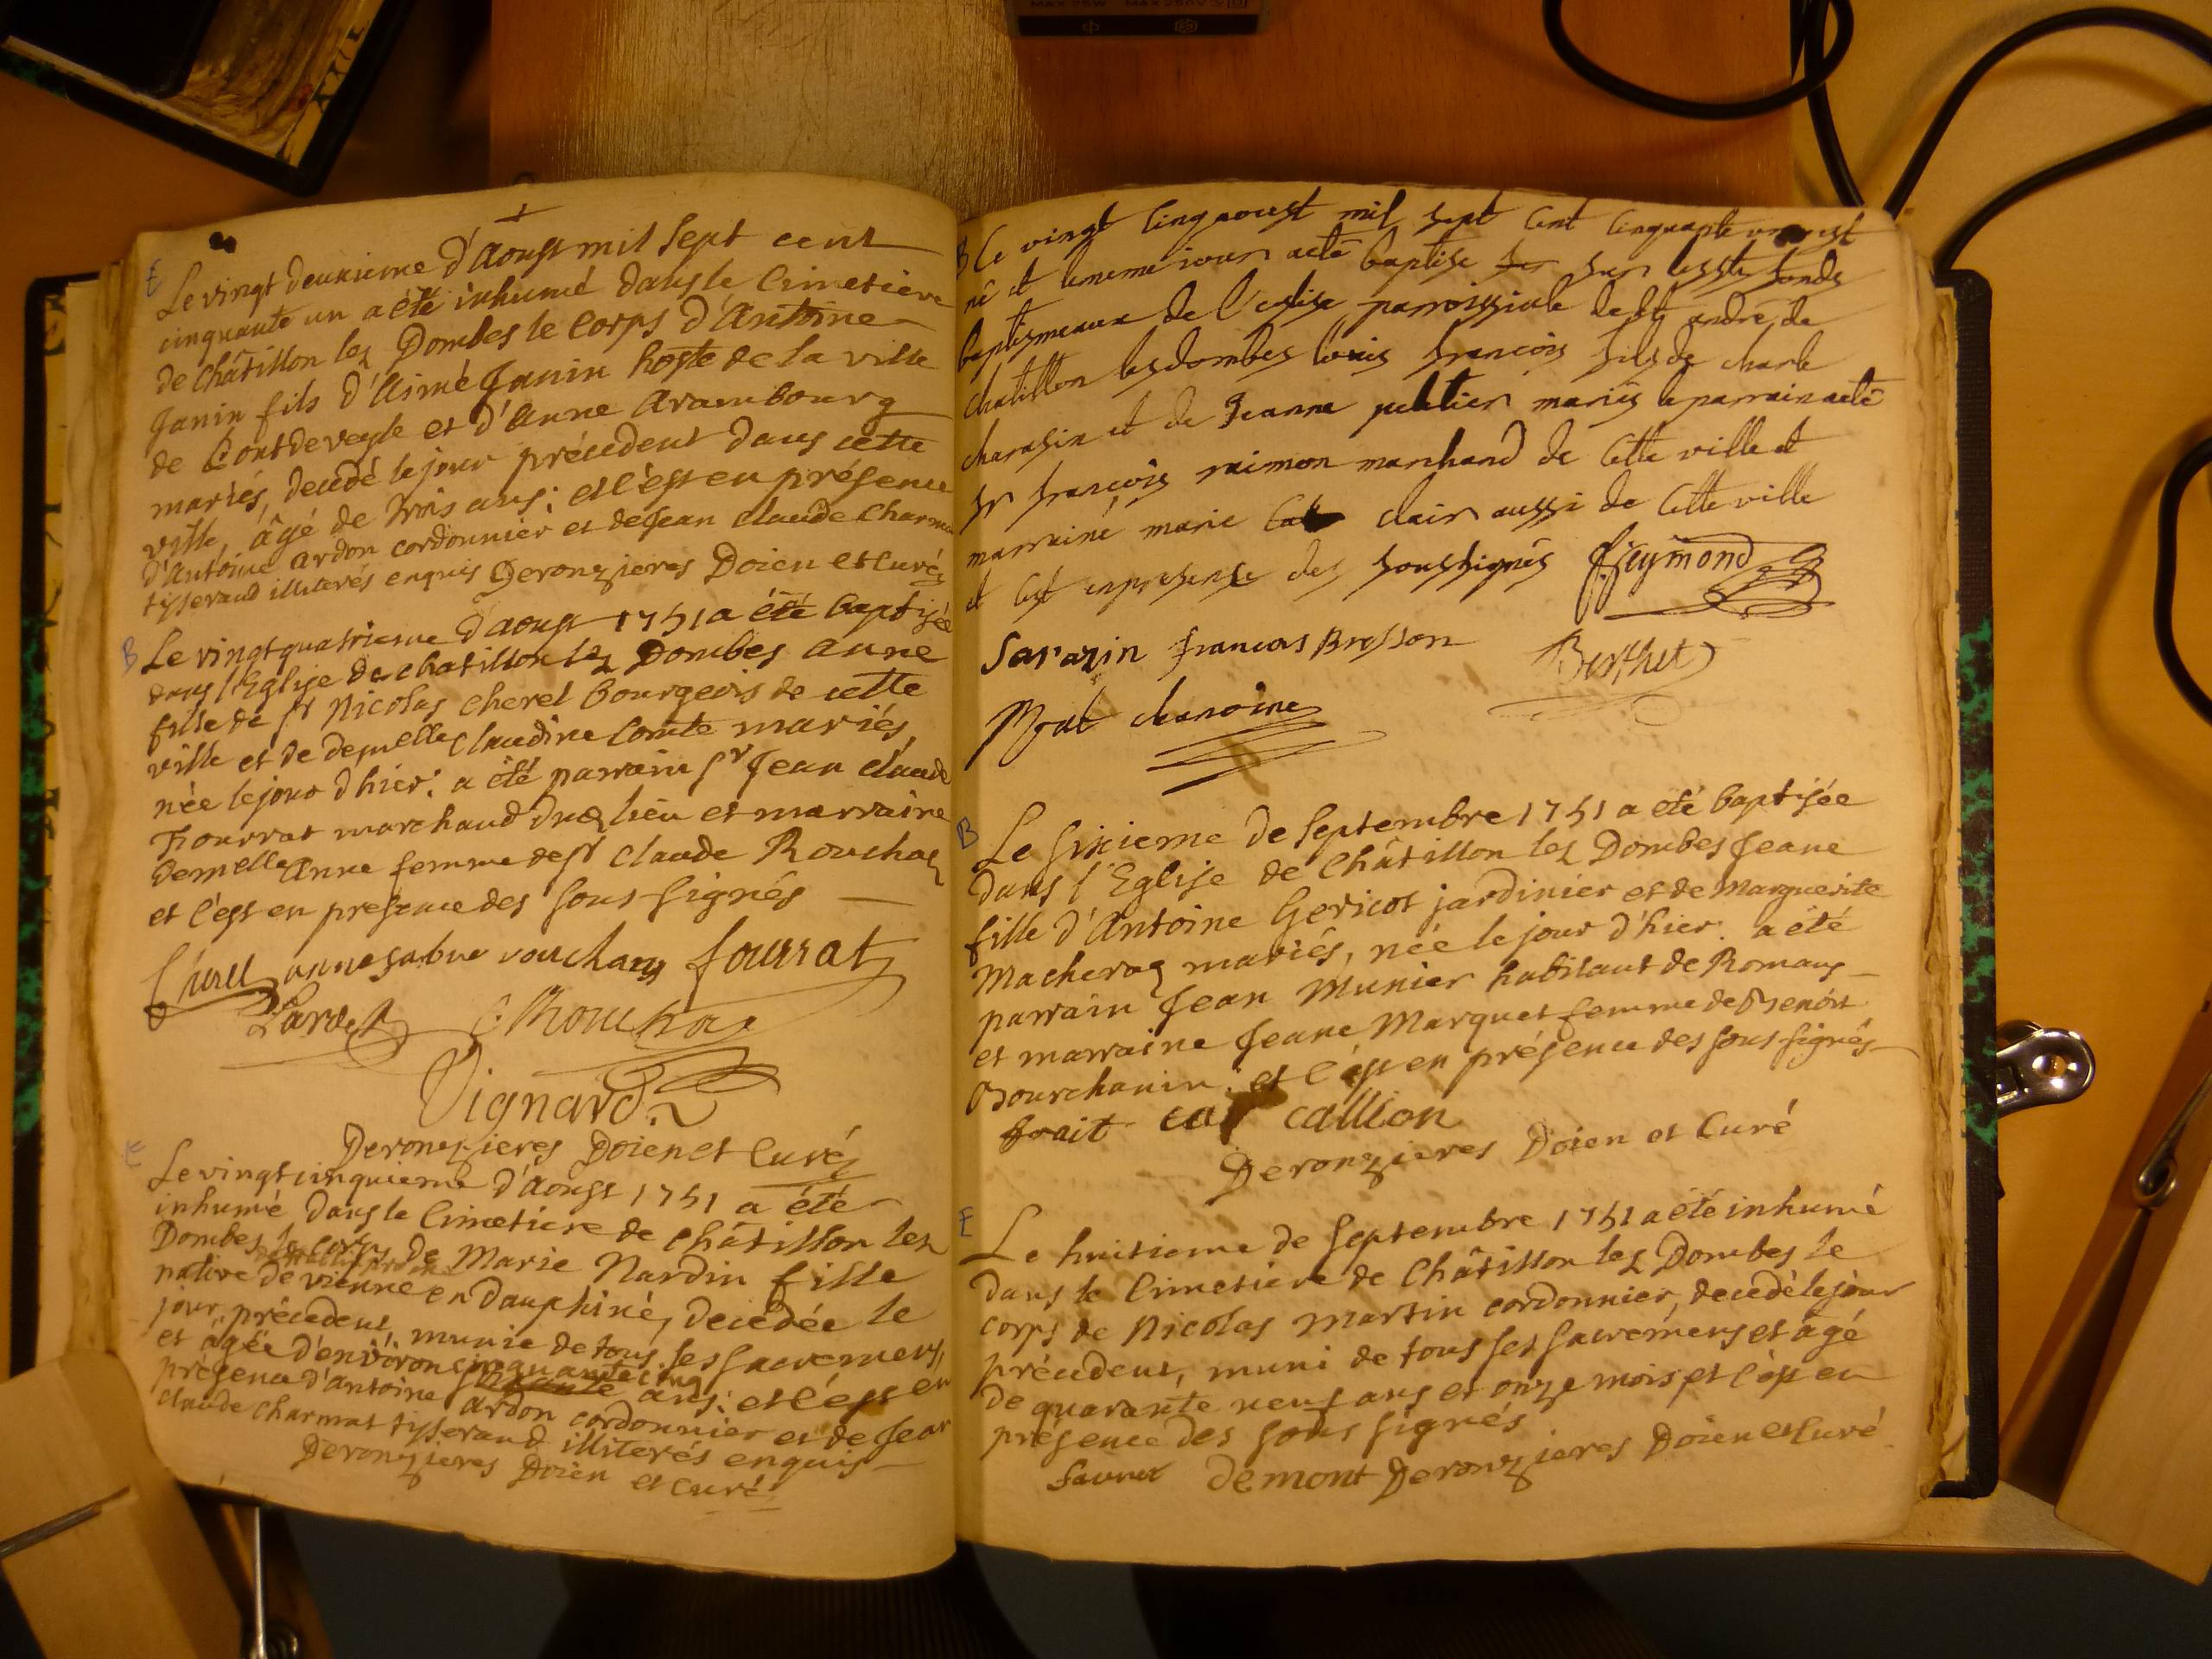 MAX 75W MAX 250V
E
Le vingt deuxieme d'Aoust mil sept cent
cinquante un a été inhumé dans le Cimetiere
de Châtillon lez Dombes le corps d'Antoine
Janin fils d'Aimé Janin hoste de la ville
de Pontdeveyle et d'Anne Arambourg
mariés, decedé le jour précedent dans cette
ville, âgé de trois ans; et c'est en présence
d'Antoine Ardon cordonnier et de Jean Claude Charmat
tisserand illiterés enquis Deronzieres Doien et Curé
B
Le vingt quatrieme d'aoust 1751 a été baptisée
dans l'Eglise de chatillon lez Dombes Anne
fille de sr Nicolas Cherel bourgeois de cette
ville et de demelle Claudine Comte mariés,
née le jour d'hier: a été parrain sr Jean claude
Fourrat marchand dud lieu et marraine
demelle Anne femme de sr claude Rouchas
et c'est en presence des sous signés
fourrat
Lardet
Vignard
Deronzieres Doien et Curé
E
Le vingt cinquieme d'Aoust 1751 a été
inhumé dans le Cimetiere de Châtillon lez
Dombes le corps de Marie Nardin fille
native de vienne en Dauphiné, decedée le
jour précedent munie de tous ses sacremens,
et âgée d'environ cinquante cinq ans: et c'est en
présence d'antoine ardon cordonnier et de Jean
claude charmat tisserand illiterés enquis
Deronzieres Doien et Curé
B Le vingt cinq aoust mil sept cent cinquante un est
né et le meme iour a eté baptisé sur les sts fonds
baptismeaux de l'eglise parroissiale de st andré de
chatillon les dombes louis françois fils de charle
charasin et de Jeanne peltier mariés le parrain a eté
sr françois raimon marchand de cette ville et
marraine marie clair aussi de cette ville
et cest en presense des soussignés ffeymond
Sarazin francois Bresson Berthet
chanoine
B
Le sixieme de Septembre 1751 a été baptisée
dans l'Eglise de Châtillon lez Dombes Jeane
fille d'Antoine Gericot jardinier et de Marguerite
Macheraz mariés, née le jour d'hier: a été
parrain Jean Munier habitant de Romans
et marraine Jeane Marquet femme de Benoit
Bourchanin: et c'est en présence des sous signés
frait callion
Deronzieres Doien et Curé
E
Le huitieme de Septembre 1751 a été inhumé
dans le Cimetiere de Châtillon lez Dombes le
corps de Nicolas Martin cordonnier, decedé le jour
précedent, muni de tous ses sacremens et âgé
de quarante neuf ans et onze mois et c'est en
présence des sous signés
favret demont Deronzieres Doien et Curé